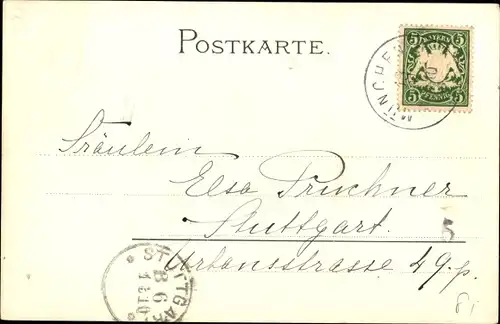 POSTKARTE.
MÜNCHEN
5 BAYERN 5
5 PFENNIG 5
Fräulein
Elsa Pruchner
Stuttgart.
5
Urbansstrasse 49.p.
STUTTGART